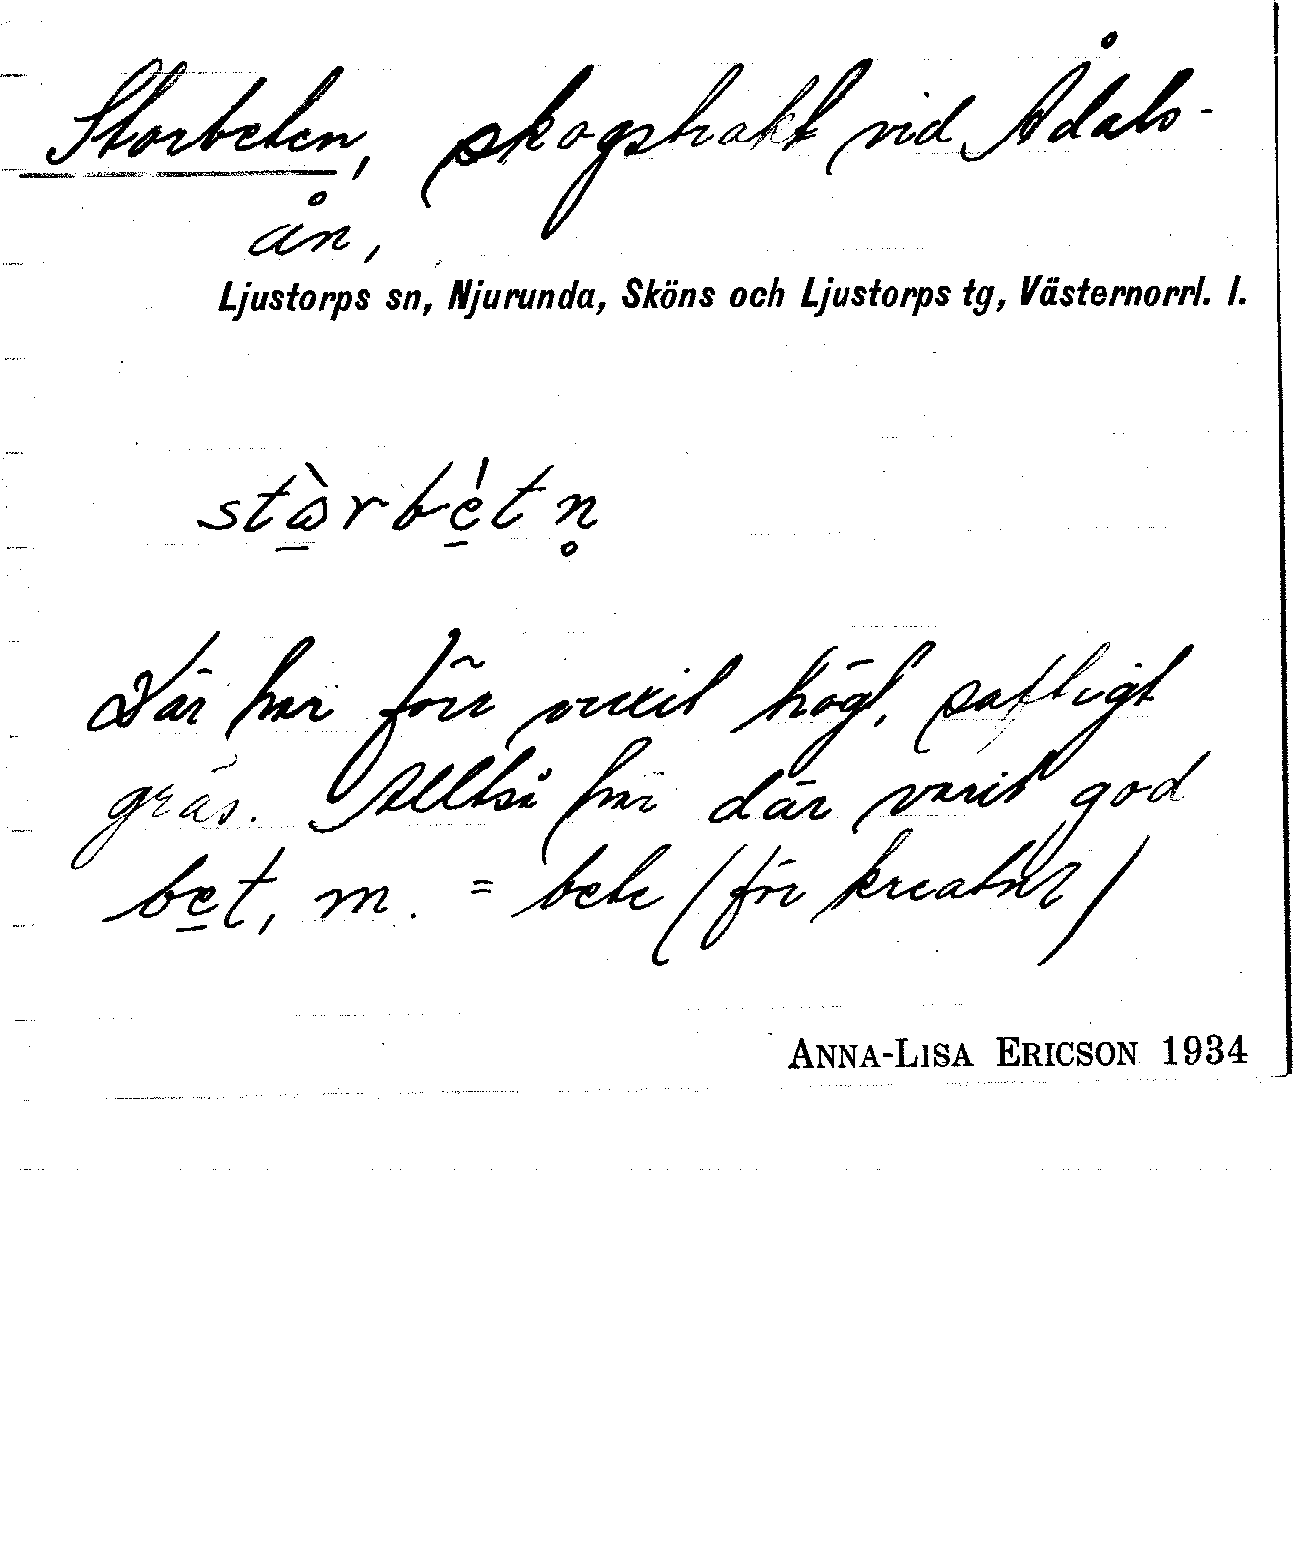 Storbeten, skogstrakt vid Ådals-
ån,
Ljustorps sn, Njurunda, Sköns och Ljustorps tg, Västernorrl. l.
stὼ̠rbe̠̍tn̥
Där har förr växit högt, saftigt
gräs. Alltså har där varit god
be̠t, m. = bete (för kreatur)
ANNA-LISA ERICSON 1934